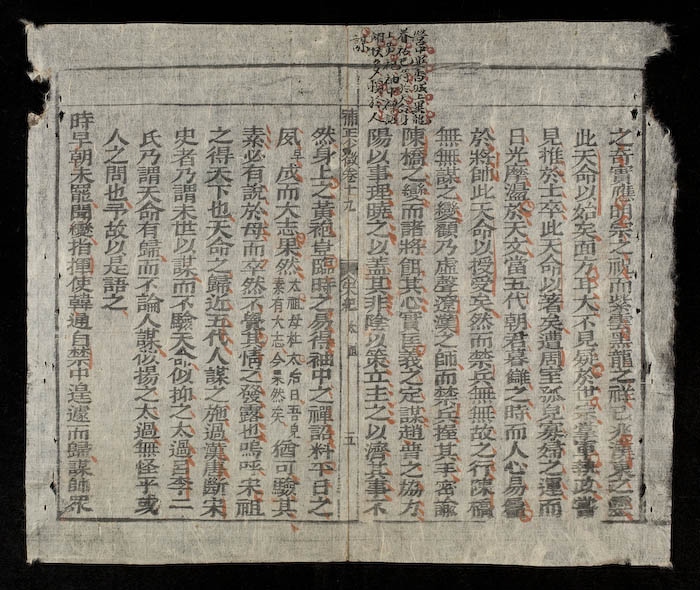 上黃袍袖中禪詔
之奇實應明宗之祝而紫雲黑龍之祥已兆漢東之靈
此天命以始矣面方耳大不見疑於世宗掌軍執政嘗
見推於士卒此天命以著矣遭周室孤兒寡婦之運而
日光摩盪於天文當五代朝君暮讎之時而人心易
於將帥此天命以授受矣然而禁兵無無故之行陳橋
無無謀之變顧乃虛聲遼漢之師而禁兵握其手密謀
陳橋之變而諸將餌其心實匡義之定謀趙普之協力
陽以事理曉之以蓋其非陰以策立主之以濟其事不
補正少微卷十九 宋紀 太祖 五
然身上之黃袍豈臨時之易得袖中之禪詔料平日之
夙早成而大志果然太祖母杜太后曰吾兒素有大志今果然矣猶可驗其
素必有說於母而卒然不覺其情之發露也嗚呼宋祖
之得天下也天命之歸近五代人謀之施過漢唐斷宋
史者乃謂末世以謀而不驗天命似抑之太過呂李二
氏乃謂天命有歸而不論人謀似揚之太過無怪乎或
人之問也予故以是語之
時早朝未罷聞變指揮使韓通自禁中遑遽而歸謀帥眾